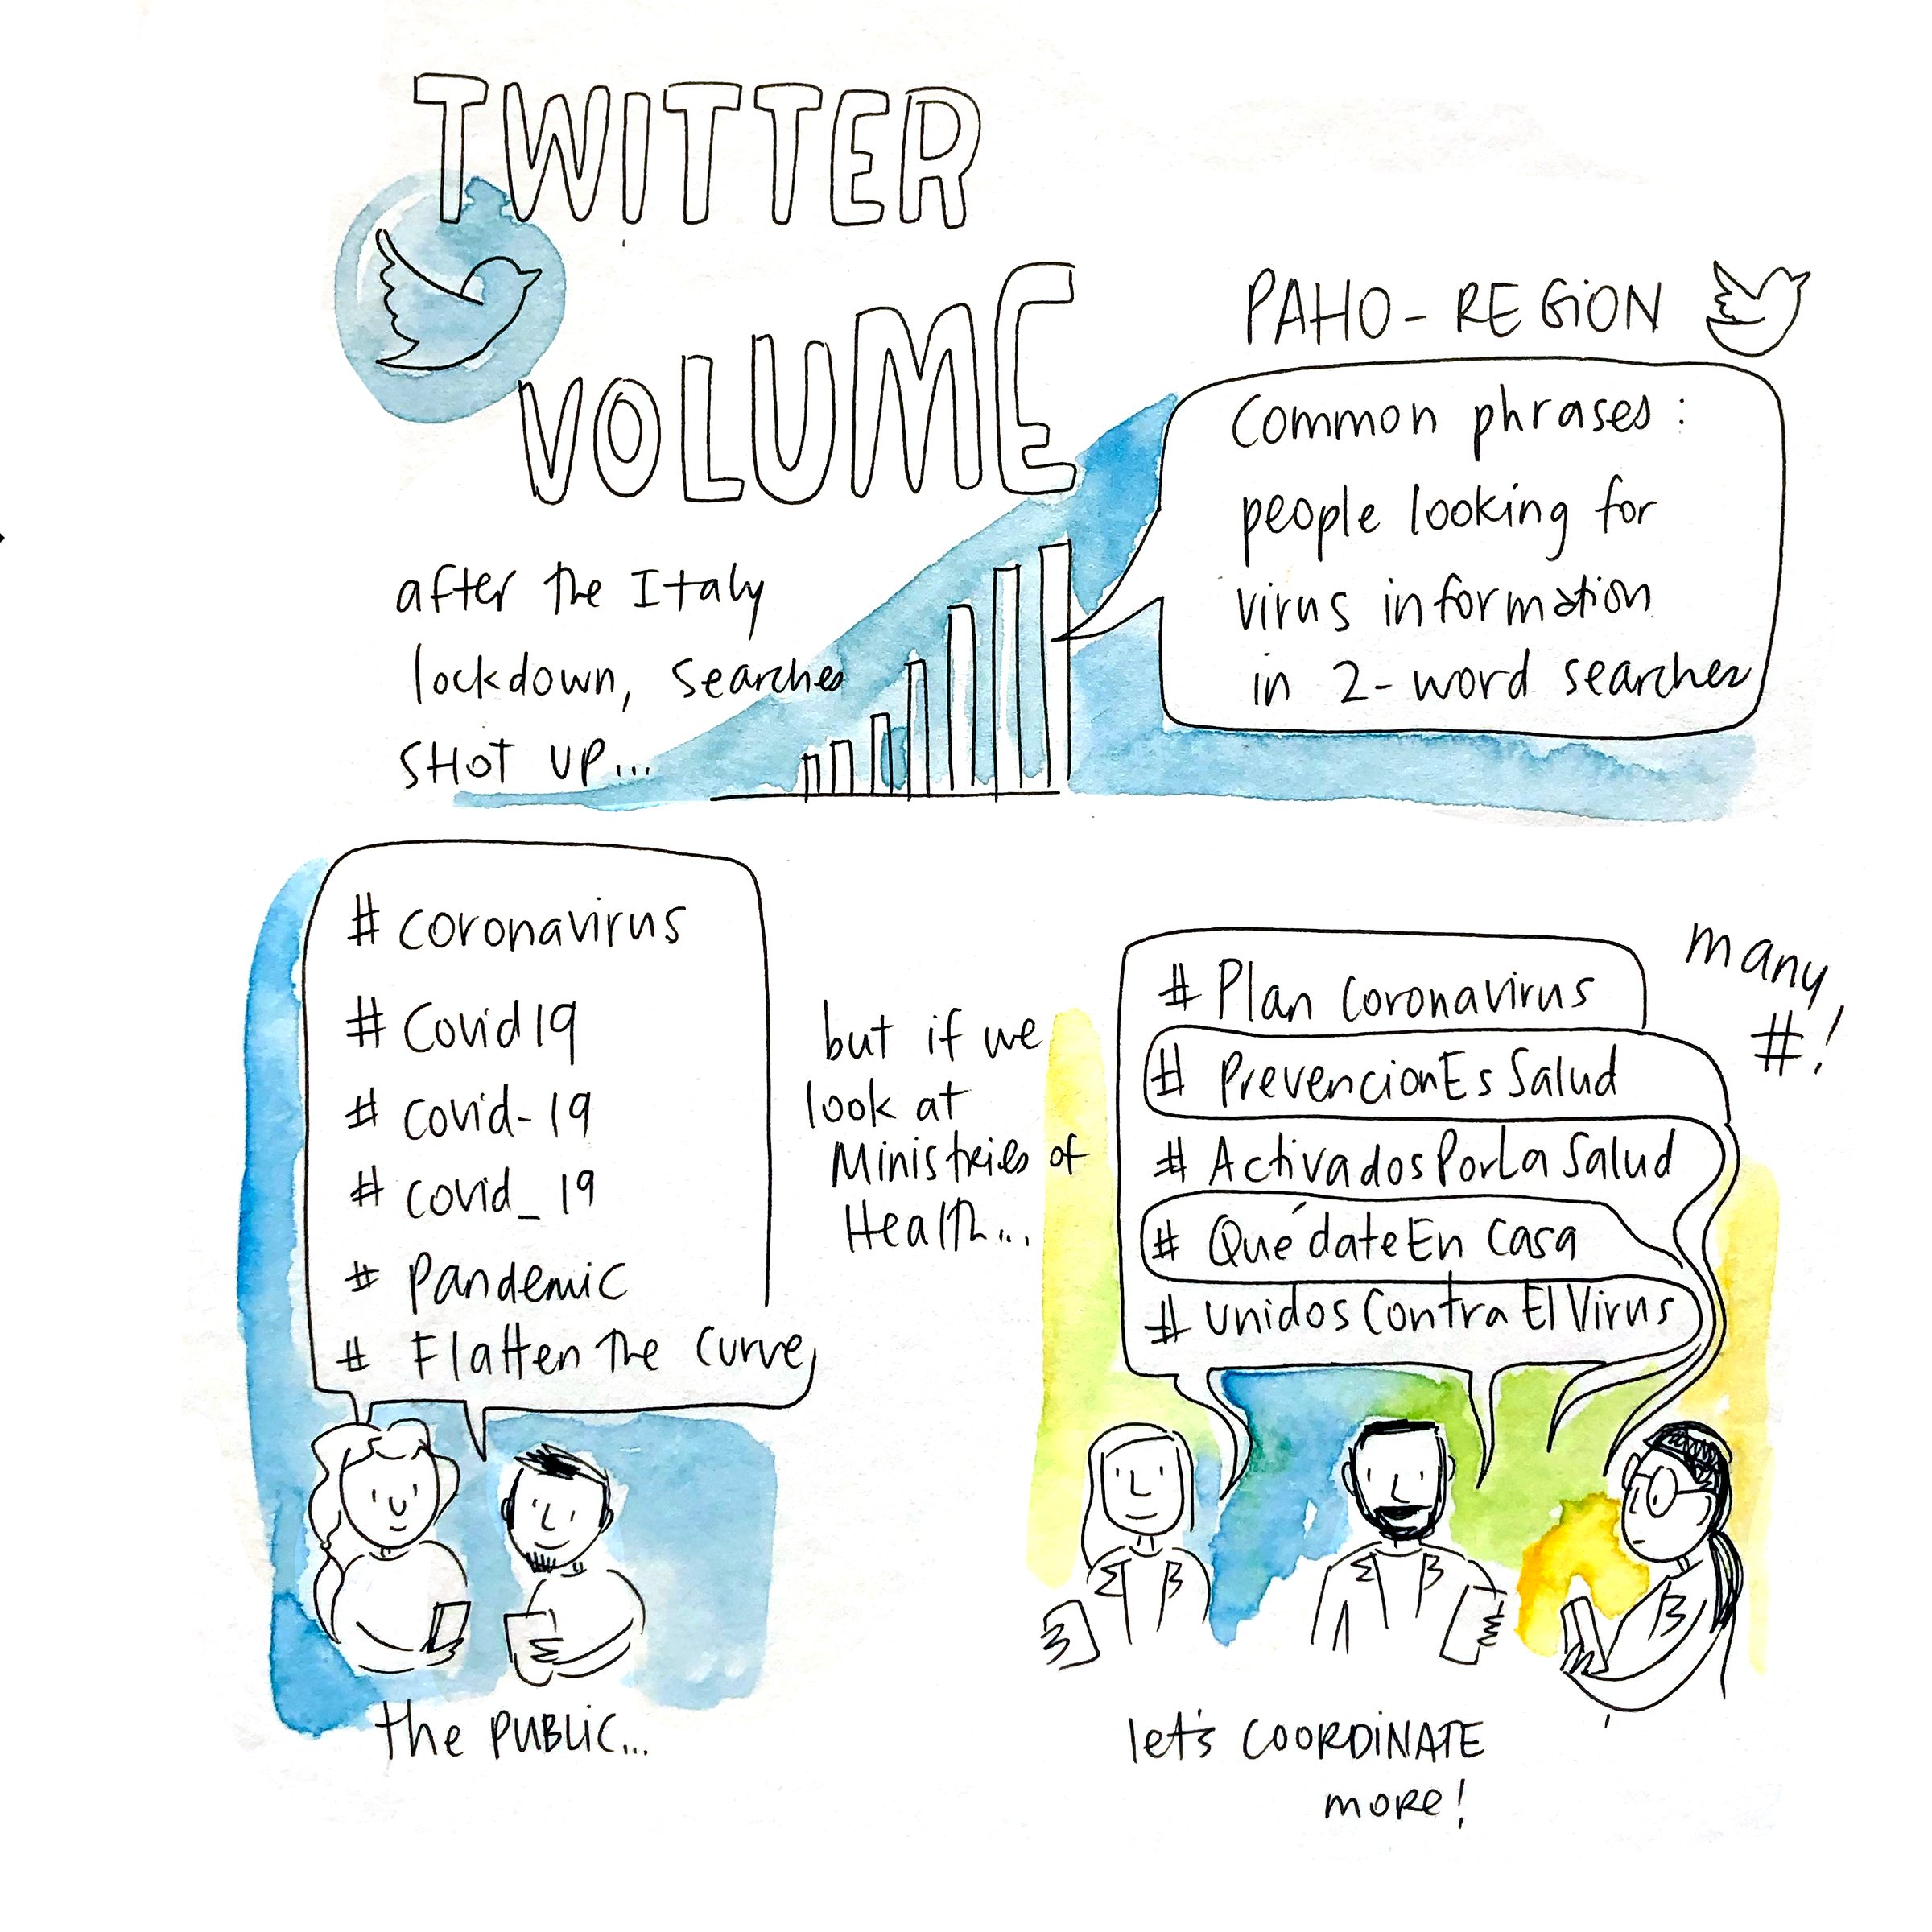 TWITTER
VOLUME
after the Italy
lockdown, searches
SHOT UP...
PAHO - REGION
Common phrases:
people looking for
virus information
in 2-word searches
# coronavirus
# Covid19
# covid-19
# covid_19
# pandemic
# Flatten The Curve
the PUBLIC...
but if we
look at
Ministries of
Health...
# Plan Coronavirus
# PrevencionEsSalud
# ActivadosPorLaSalud
# QuédateEn Casa
# unidosContraElVirus
many
#!
let's COORDINATE
more!